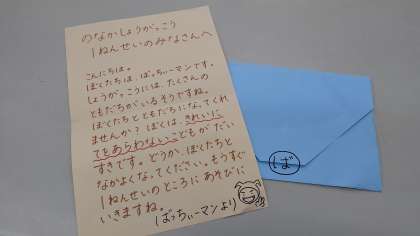 のなかしょうがっこう
1ねんせいのみなさんへ
こんにちは。
ぼくたちは、ばっちぃーマンです。
しょうがっこうには、たくさんの
ともだちがいるそうですね。
ぼくたちとともだちになってくれ
ませんか？ぼくは、きれいに
てをあらわないこどもがだい
すきです。どうか、ぼくたちと
なかよくなってください。もうすぐ
1ねんせいのところにあそびに
いきますね。
ばっちぃーマンより
ば